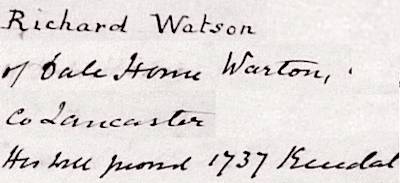 Richard Watson
of Dale House Warton,
Co Lancaster
His will proved 1737 Kendal